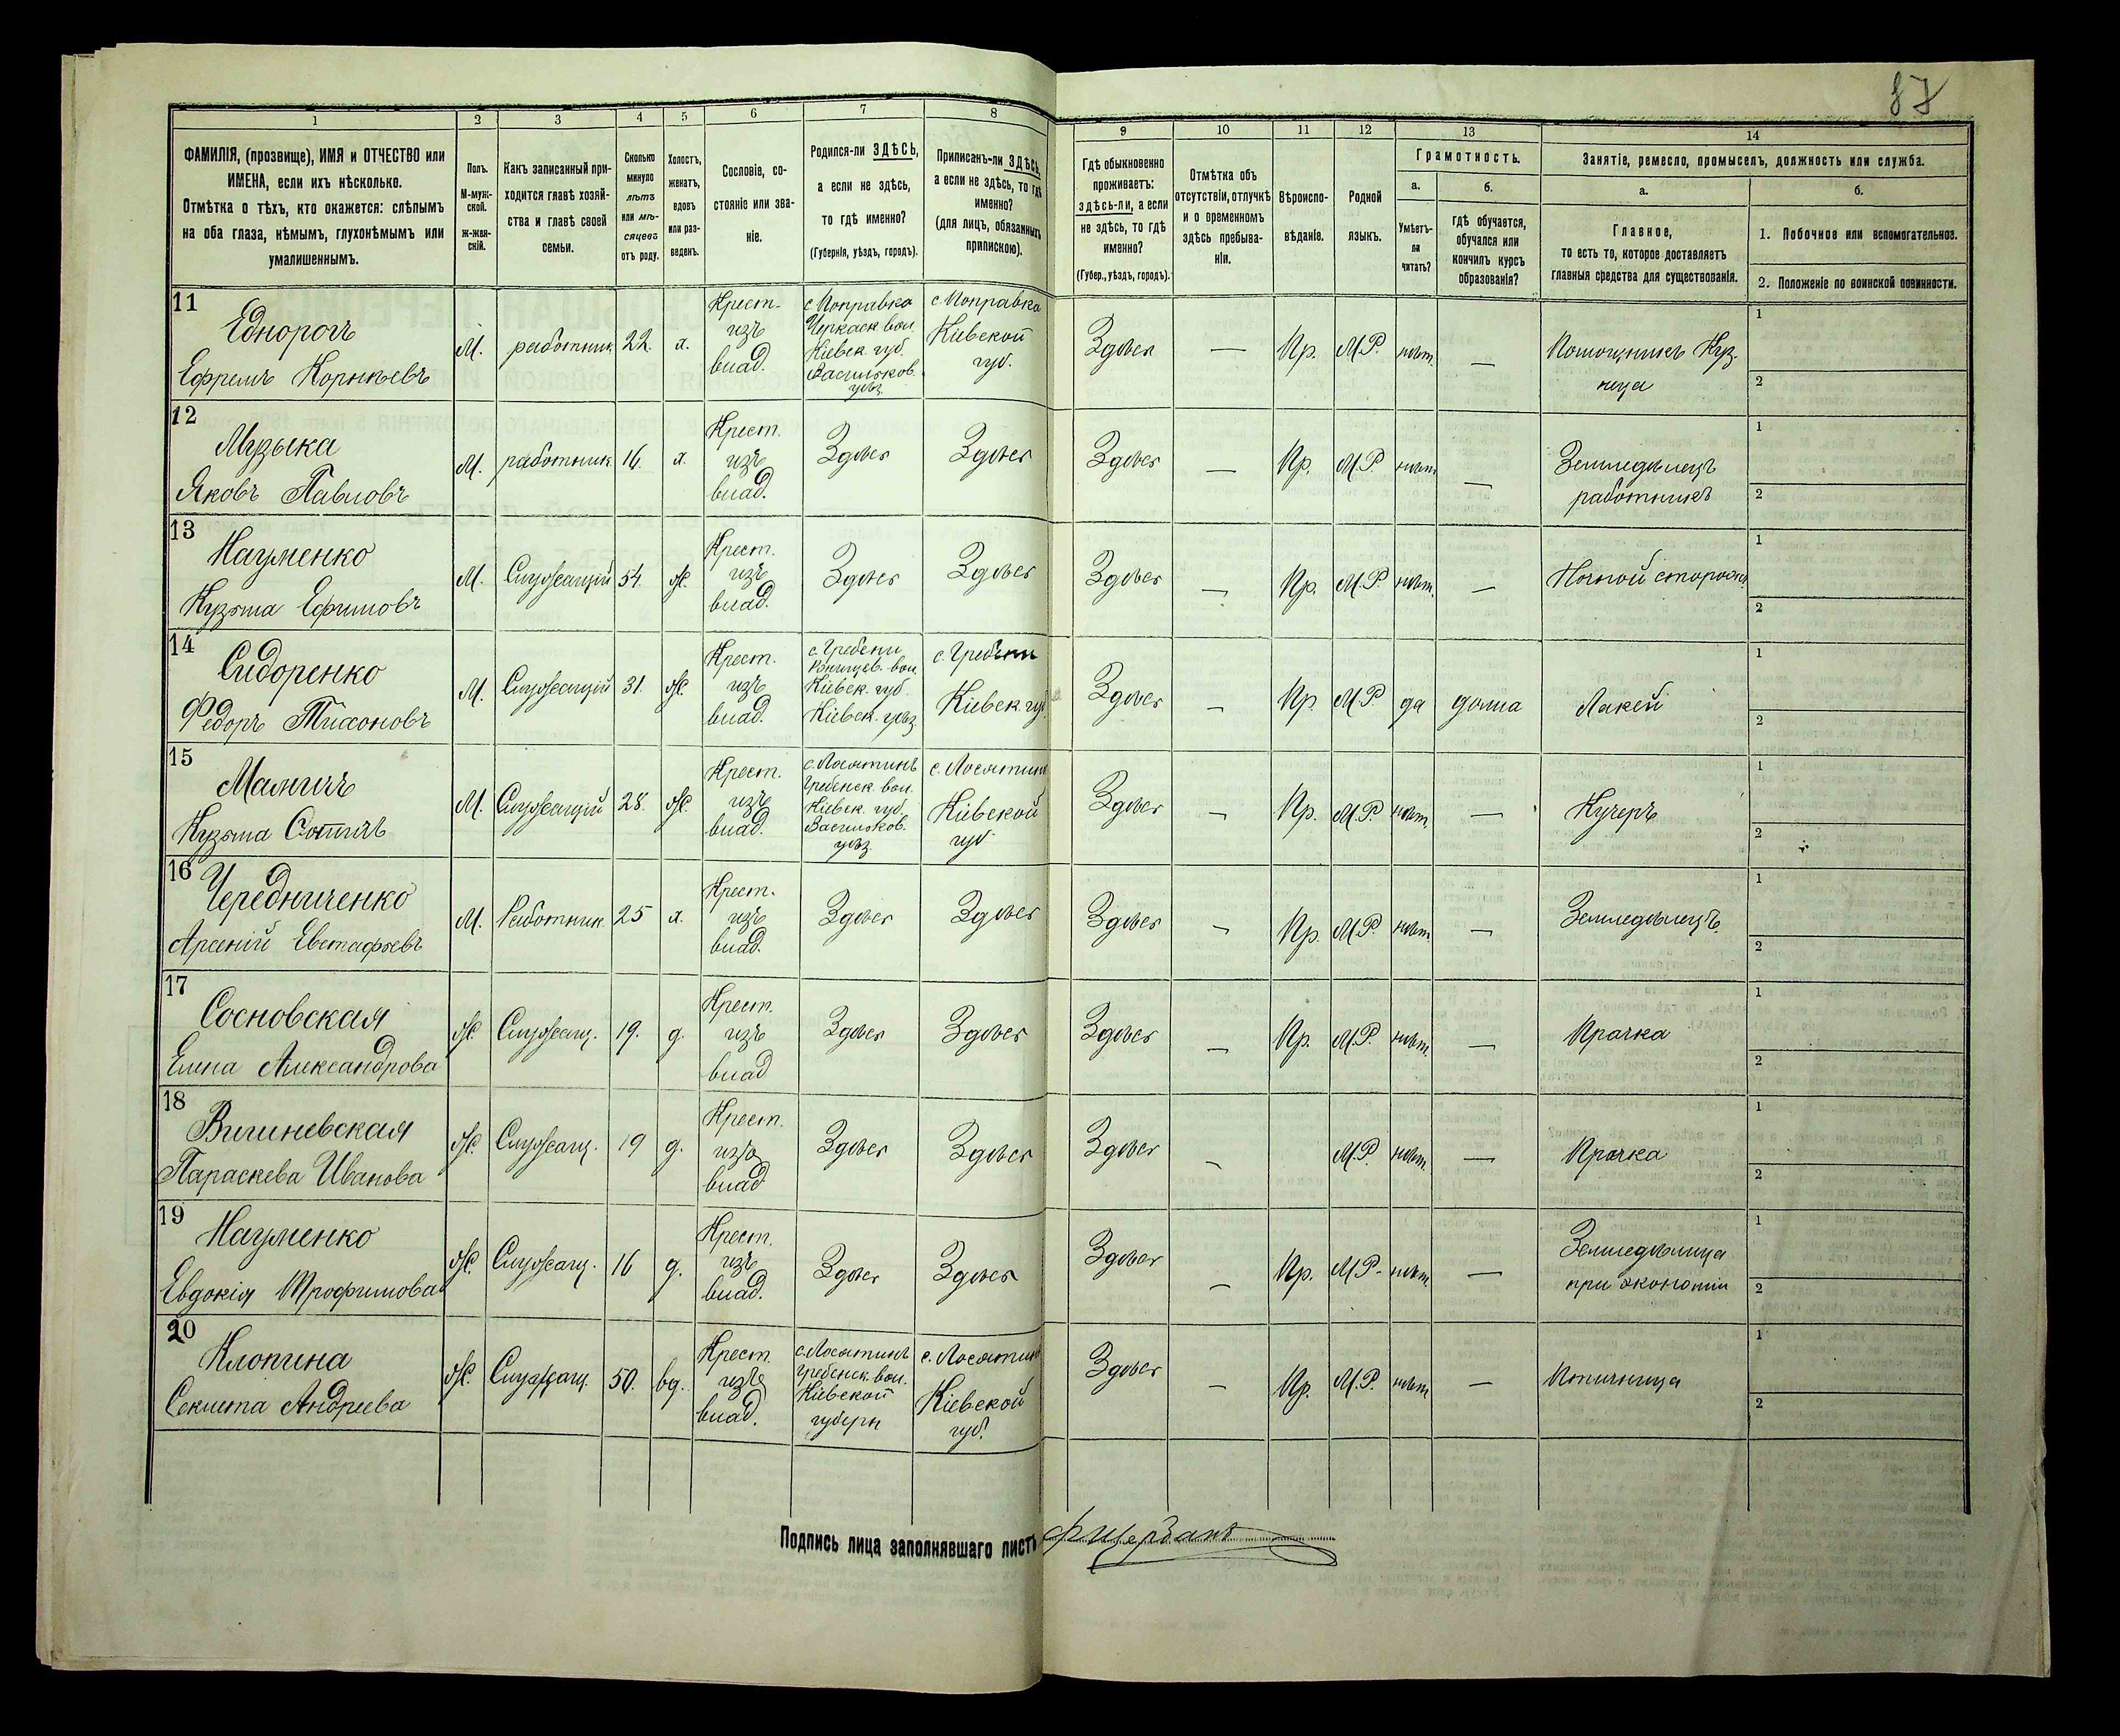 87
1 2 3 4 5 6 7 8 9 10 11 12 13 14
ФАМИЛІЯ, (прозвище), ИМЯ и ОТЧЕСТВО или
ИМЕНА, если ихъ нѣсколько.
Отмѣтка о тѣхъ, кто окажется: слѣпымъ
на оба глаза, нѣмымъ, глухонѣмымъ или
умалишеннымъ.
Полъ.
М-муж-
ской.
ж-жен-
скій.
Какъ записанный при-
ходится главѣ хозяй-
ства и главѣ своей
семьи.
Сколько
минуло
лѣтъ
или мѣ-
сяцевъ
отъ роду.
Холостъ,
женатъ,
вдовъ
или раз-
веденъ.
Сословіе, со-
стояніе или зва-
ніе.
Родился-ли ЗДѢСЬ,
а если не здѣсь,
то гдѣ именно?
(Губернія, уѣздъ, городъ).
Приписанъ-ли ЗДѢСЬ,
а если не здѣсь, то гдѣ
именно?
(для лицъ, обязанныхъ
припискою).
Гдѣ обыкновенно
проживаетъ:
здѣсь-ли, а если
не здѣсь, то гдѣ
именно?
(Губер., уѣздъ, городъ).
Отмѣтка объ
отсутствіи, отлучкѣ
и о временномъ
здѣсь пребыва-
ніи.
Вѣроиспо-
вѣданіе.
Родной
языкъ.
Грамотность.
а.
Умѣетъ-
ли
читать?
б.
гдѣ обучается,
обучался или
кончилъ курсъ
образованія?
Занятіе, ремесло, промыселъ, должность или служба.
а.
Главное,
то есть то, которое доставляетъ
главныя средства для существованія.
б.
1. Побочное или вспомогательное.
2. Положеніе по воинской повинности.
11
Еднорогъ
Ефремъ Корнѣевъ
М. работник. 22. х.
Крест.
изъ
влад.
с. Поправка
Черкаск. вол.
Кіевск. губ.
Васильков.
уѣз.
с. Поправка
Кіевской
губ.
Здѣсь — Пр. М.Р. нѣт. —
Помощникъ Куз-
неца
1
2
12
Музыка
Яковъ Павловъ
М. работник. 16. х.
Крест.
изъ
влад.
Здѣсь Здѣсь Здѣсь — Пр. М.Р нѣт. —
Земледѣлецъ
работникъ
1
2
13
Науменко
Кузьма Ефимовъ
М. Служащій 54. ж.
Крест.
изъ
влад.
Здѣсь Здѣсь Здѣсь — Пр. М.Р нѣт. —
Ночной сторожъ
1
2
14
Сидоренко
Федоръ Тихоновъ
М. Служащій 31. ж.
Крест.
изъ
влад.
с. Гребени
Кіевск. губ.
Кіевск. уѣз
с. Гребени
Кіевск. губ
Здѣсь — Пр. М.Р. да дома
Лакей
1
2
15
Кузьма
М. Служащій 28. ж.
Крест.
изъ
влад.
с. Лосятинъ
Гребенск. вол.
Кіевск. губ.
Васильков.
уѣз.
с. Лосятинъ
Кіевской
губ
Здѣсь — Пр. М.Р. нѣт. —
Кучеръ
1
2
16
Чередниченко
Арсеній Евстафьевъ
М. Работник. 25 х.
Крест.
изъ
влад.
Здѣсь Здѣсь Здѣсь — Пр. М.Р. нѣт. —
Земледѣлецъ.
1
2
17
Сосновская
Елена Александрова
Ж. Служащ. 19. д.
Крест.
изъ
влад
Здѣсь Здѣсь Здѣсь — Пр. М.Р. нѣт. —
Прачка
1
2
18
Вишневская
Параскева Иванова
Ж. Служащ. 19 д.
Крест.
изъ
влад
Здѣсь Здѣсь Здѣсь — М.Р. нѣт. —
Прачка
1
2
19
Науменко
Евдокія Трофимова
Ж. Служащ. 16 д.
Крест.
изъ
влад.
Здѣсь Здѣсь Здѣсь — Пр. М.Р. нѣт. —
Земледѣлица
при экономіи
1
2
20
Клопина
Секлета Андреева
Ж. Служащ. 50. вд.
Крест.
изъ
влад.
с. Лосятинъ
Гребенск. вол.
Кіевской
губерн
с. Лосятинъ
Кіевской
губ.
Здѣсь — Пр. М.Р. нѣт —
Птичница
1
2
Подпись лица заполнявшаго листъ